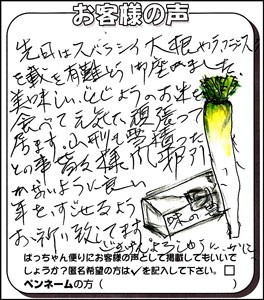 お客様の声
先日はスバラシイ大根やラ・フランス
を戴き有難とう御座いました。
美味しい、どじょうのお米を
食べて元気に頑張って
居ます。山形も雪積った
との事 皆々様 風邪引
かないように良い
年をすごせるよう
お祈り致してます
味の
ぱっちゃん便りにお客様の声として掲載してもいいで
しょうか?匿名希望の方は✓を記入して下さい。□
ペンネームの方( )